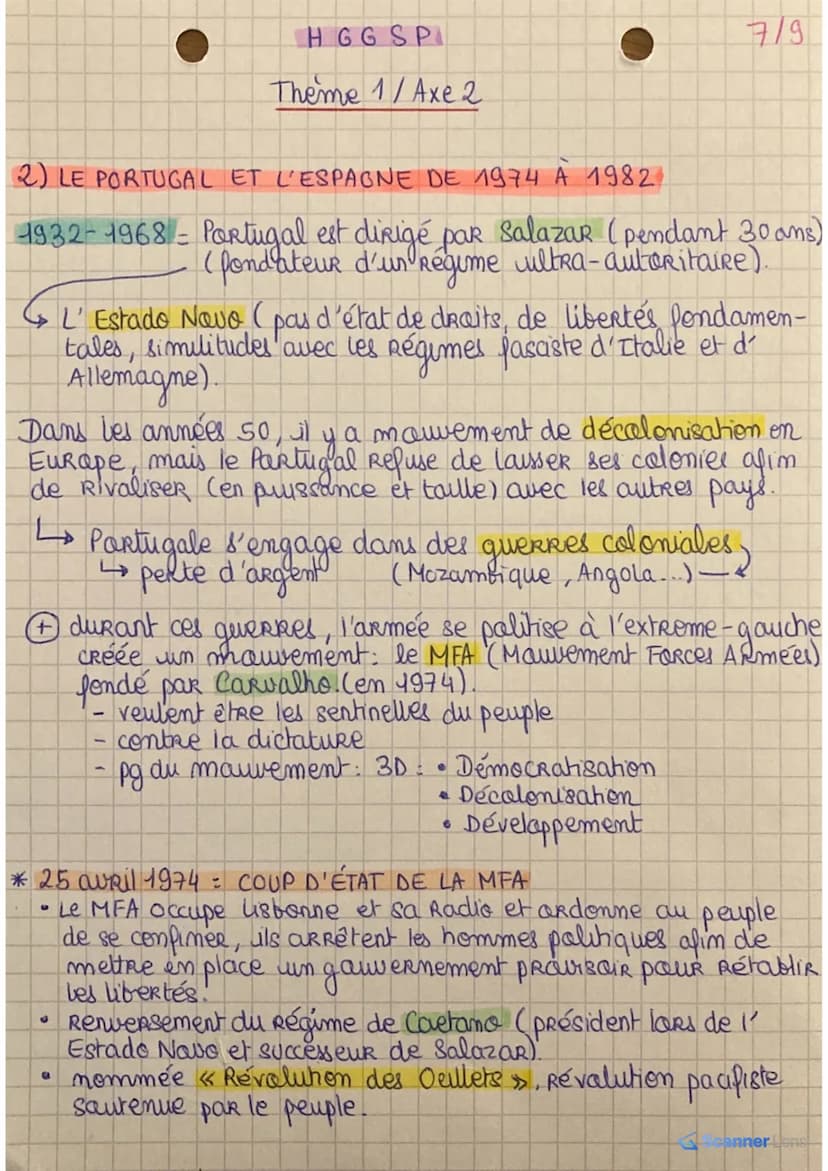 HGGSP
7/9
Thème 1 / Axe 2
2) LE PORTUGAL ET L'ESPAGNE DE 1974 À 1982
1932-1968 = Portugal est dirigé par Salazar (pendant 30 ans)
(fondateur d'un régime ultra-autoritaire).
↳ L'Estado Novo (pas d'état de droits, de libertés fondamen-
tales, similitudes avec les régimes fasciste d'Italie et d'
Allemagne).
Dans les années 50, il y a mouvement de décolonisation en
Europe, mais le Portugal refuse de laisser ses colonies afin
de rivaliser (en puissance et taille) avec les autres pays.
↳ Portugale s'engage dans des guerres coloniales
↳ perte d'argent (Mozambique, Angola...)
⊕ durant ces guerres, l'armée se politise à l'extreme-gauche
créée un mouvement: le MFA (Mouvement Forces Armées)
fondé par Carvalho. (en 1974).
- veulent être les sentinelles du peuple
- contre la dictature
- pg du mouvement: 3D: • Démocratisation
• Décolonisation
• Développement
* 25 avril 1974 = COUP D'ÉTAT DE LA MFA
• Le MFA occupe Lisbonne et sa Radio et ordonne au peuple
de se confiner, ils arrêtent les hommes politiques afin de
mettre en place un gouvernement provisoir pour rétablir
les libertés.
• Renversement du régime de Caetano (président lors de l'
Estado Novo et successeur de Salazar).
• nommée « Révolution des Oeillets », révolution pacifiste
soutenue par le peuple.
Scanner Lens